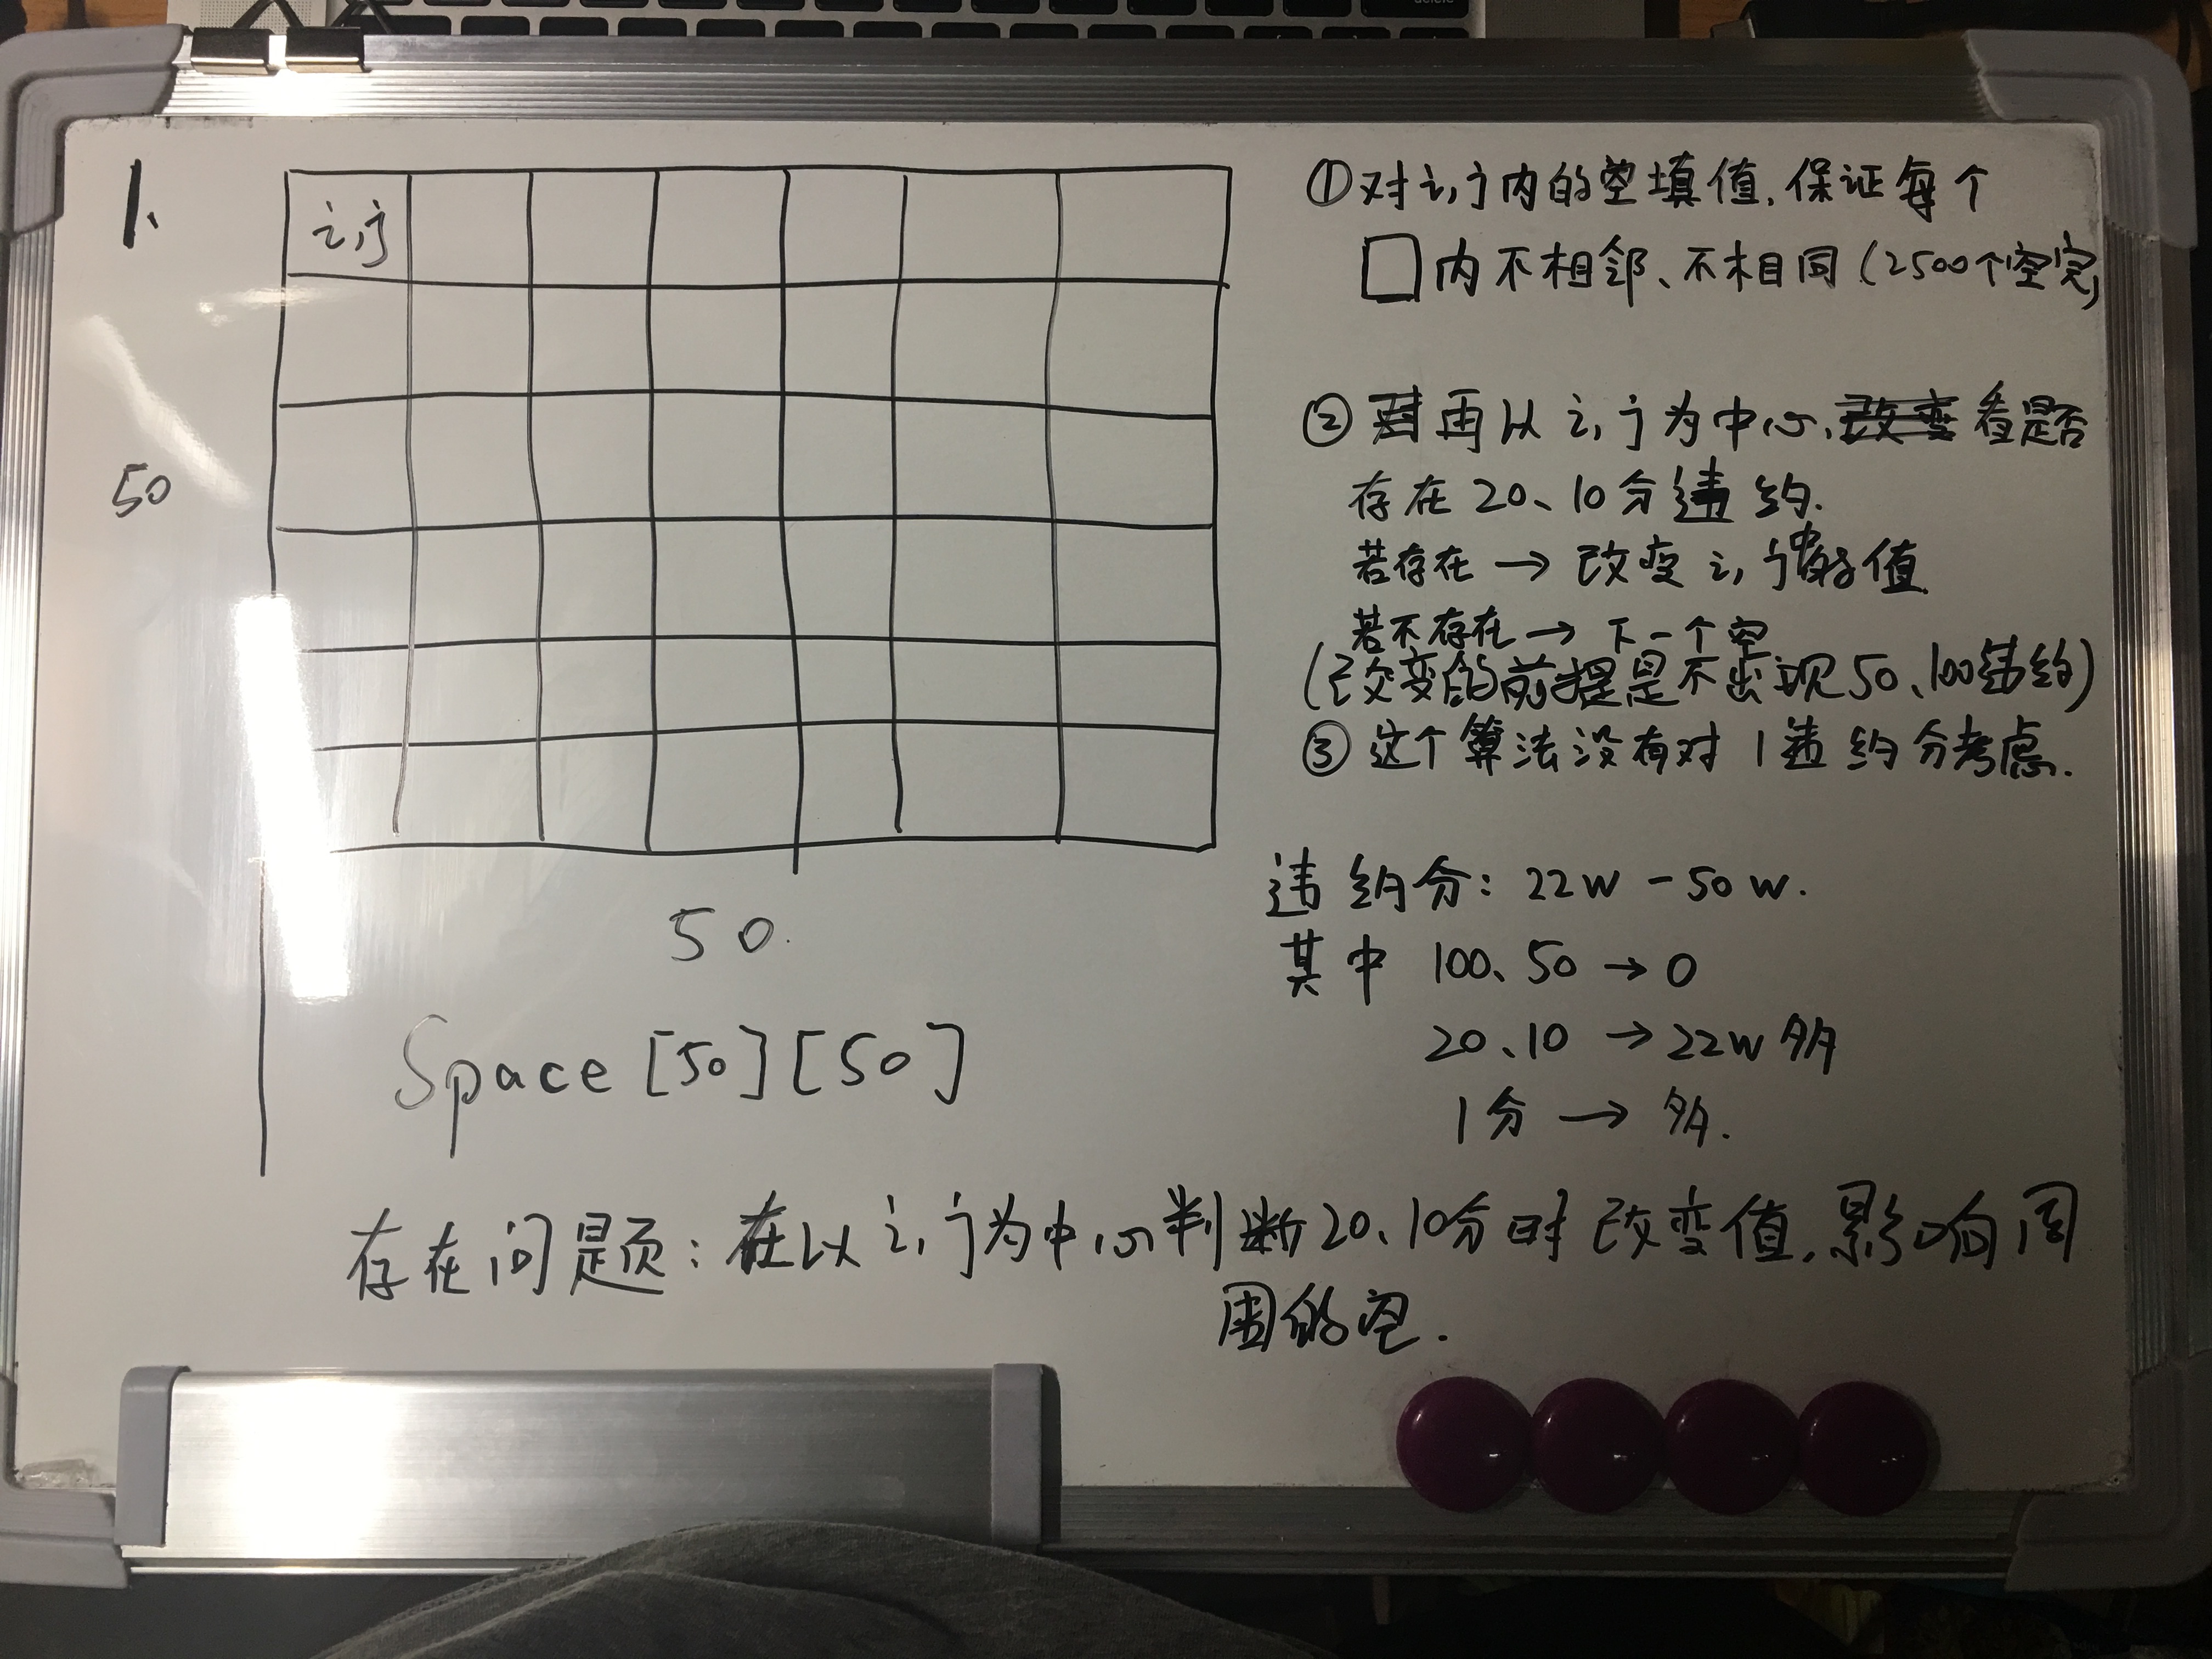 delete
1、
i,j
50
50.
Space [50][50]
①对i,j内的空填值,保证每个
囗内不相邻、不相同(2500个空完)
② 再以i,j为中心,看是否
存在20、10分违约.
若存在→改变i,j中的值
若不存在→下一个空
(改变的前提是不出现50、100违约)
③这个算法没有对1违约分考虑.
违约分:22w-50w.
其中 100、50→0
20、10→22w多
1分→多.
存在问题:在以i,j为中心判断20、10分时改变值,影响周
围的空.